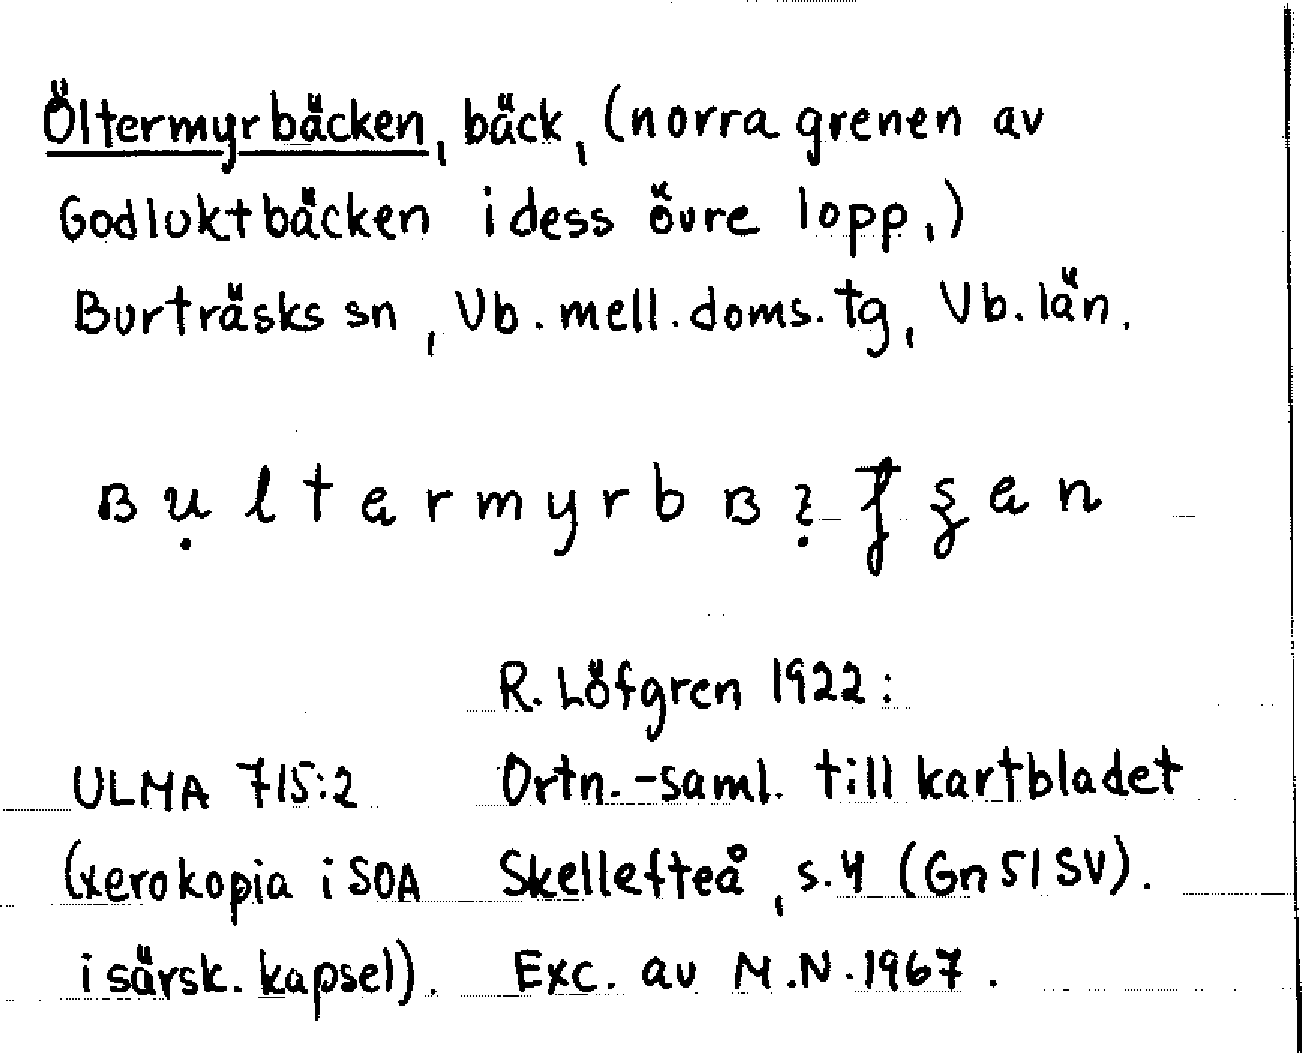 Öltermyrbäcken, bäck, (norra grenen av
Godluktbäcken i dess övre lopp.)
Burträsks sn, Vb. mell. doms. tg, Vb. län.
R. Löfgren 1922:
ULMA 715:2 Ortn.-saml. till kartbladet
(xerokopia i SOA Skellefteå, s. 4 (Gn 51 SV).
i särsk. kapsel). Exc. av M.N. 1967.